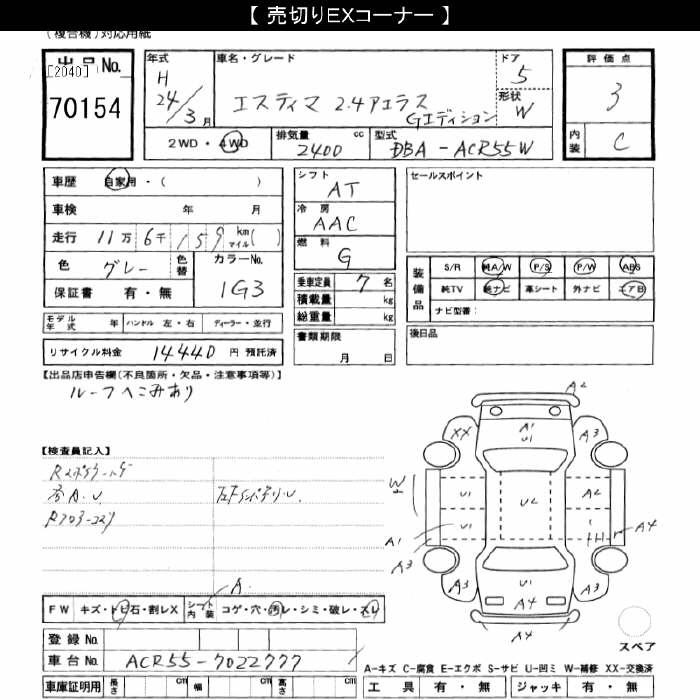 【 売切りEXコーナー 】
(複合機)対応用紙
出品No.
[2040]
70154
年式
H
24/3月
車名・グレード
エスティマ 2.4アエラス
Gエディション
ドア
5
形状
W
評価点
3
内装
C
2WD・4WD
排気量 cc
2400
型式
DBA-ACR55W
車歴 自家用・( )
車検 年 月
走行 11万6千159 km マイル( )
色 グレー 色替 カラーNo. 1G3
保証書 有・無
モデル年式 年 ハンドル 左・右 ディーラー・並行
リサイクル料金 14440 円 預託済
シフト
AT
冷房
AAC
燃料
G
乗車定員 7 名
積載量 kg
総重量 kg
書類期限
月 日
セールスポイント
装備品
S/R 純A/W P/S P/W ABS
純TV 純ナビ 革シート 外ナビ エアB
ナビ型番:
後日品
【出品店申告欄(不良箇所・欠品・注意事項等)】
ルーフヘこみあり
【検査員記入】
A.U
A
FW キズ・トビ石・割レX シート内装 コゲ・穴・汚レ・シミ・破レ・スレ
登録No.
車台No. ACR55-7022777
車庫証明用 長さ cm 幅 cm 高さ cm
A2
XX
A1
U1
A3
W
U1
U2
A2
U1
A1
A3
A4
A3
U1
A4
A3
A4
スペア
A-キズ C-腐食 E-エクボ S-サビ U-凹ミ W-補修 XX-交換済
工具 有・無 ジャッキ 有・無